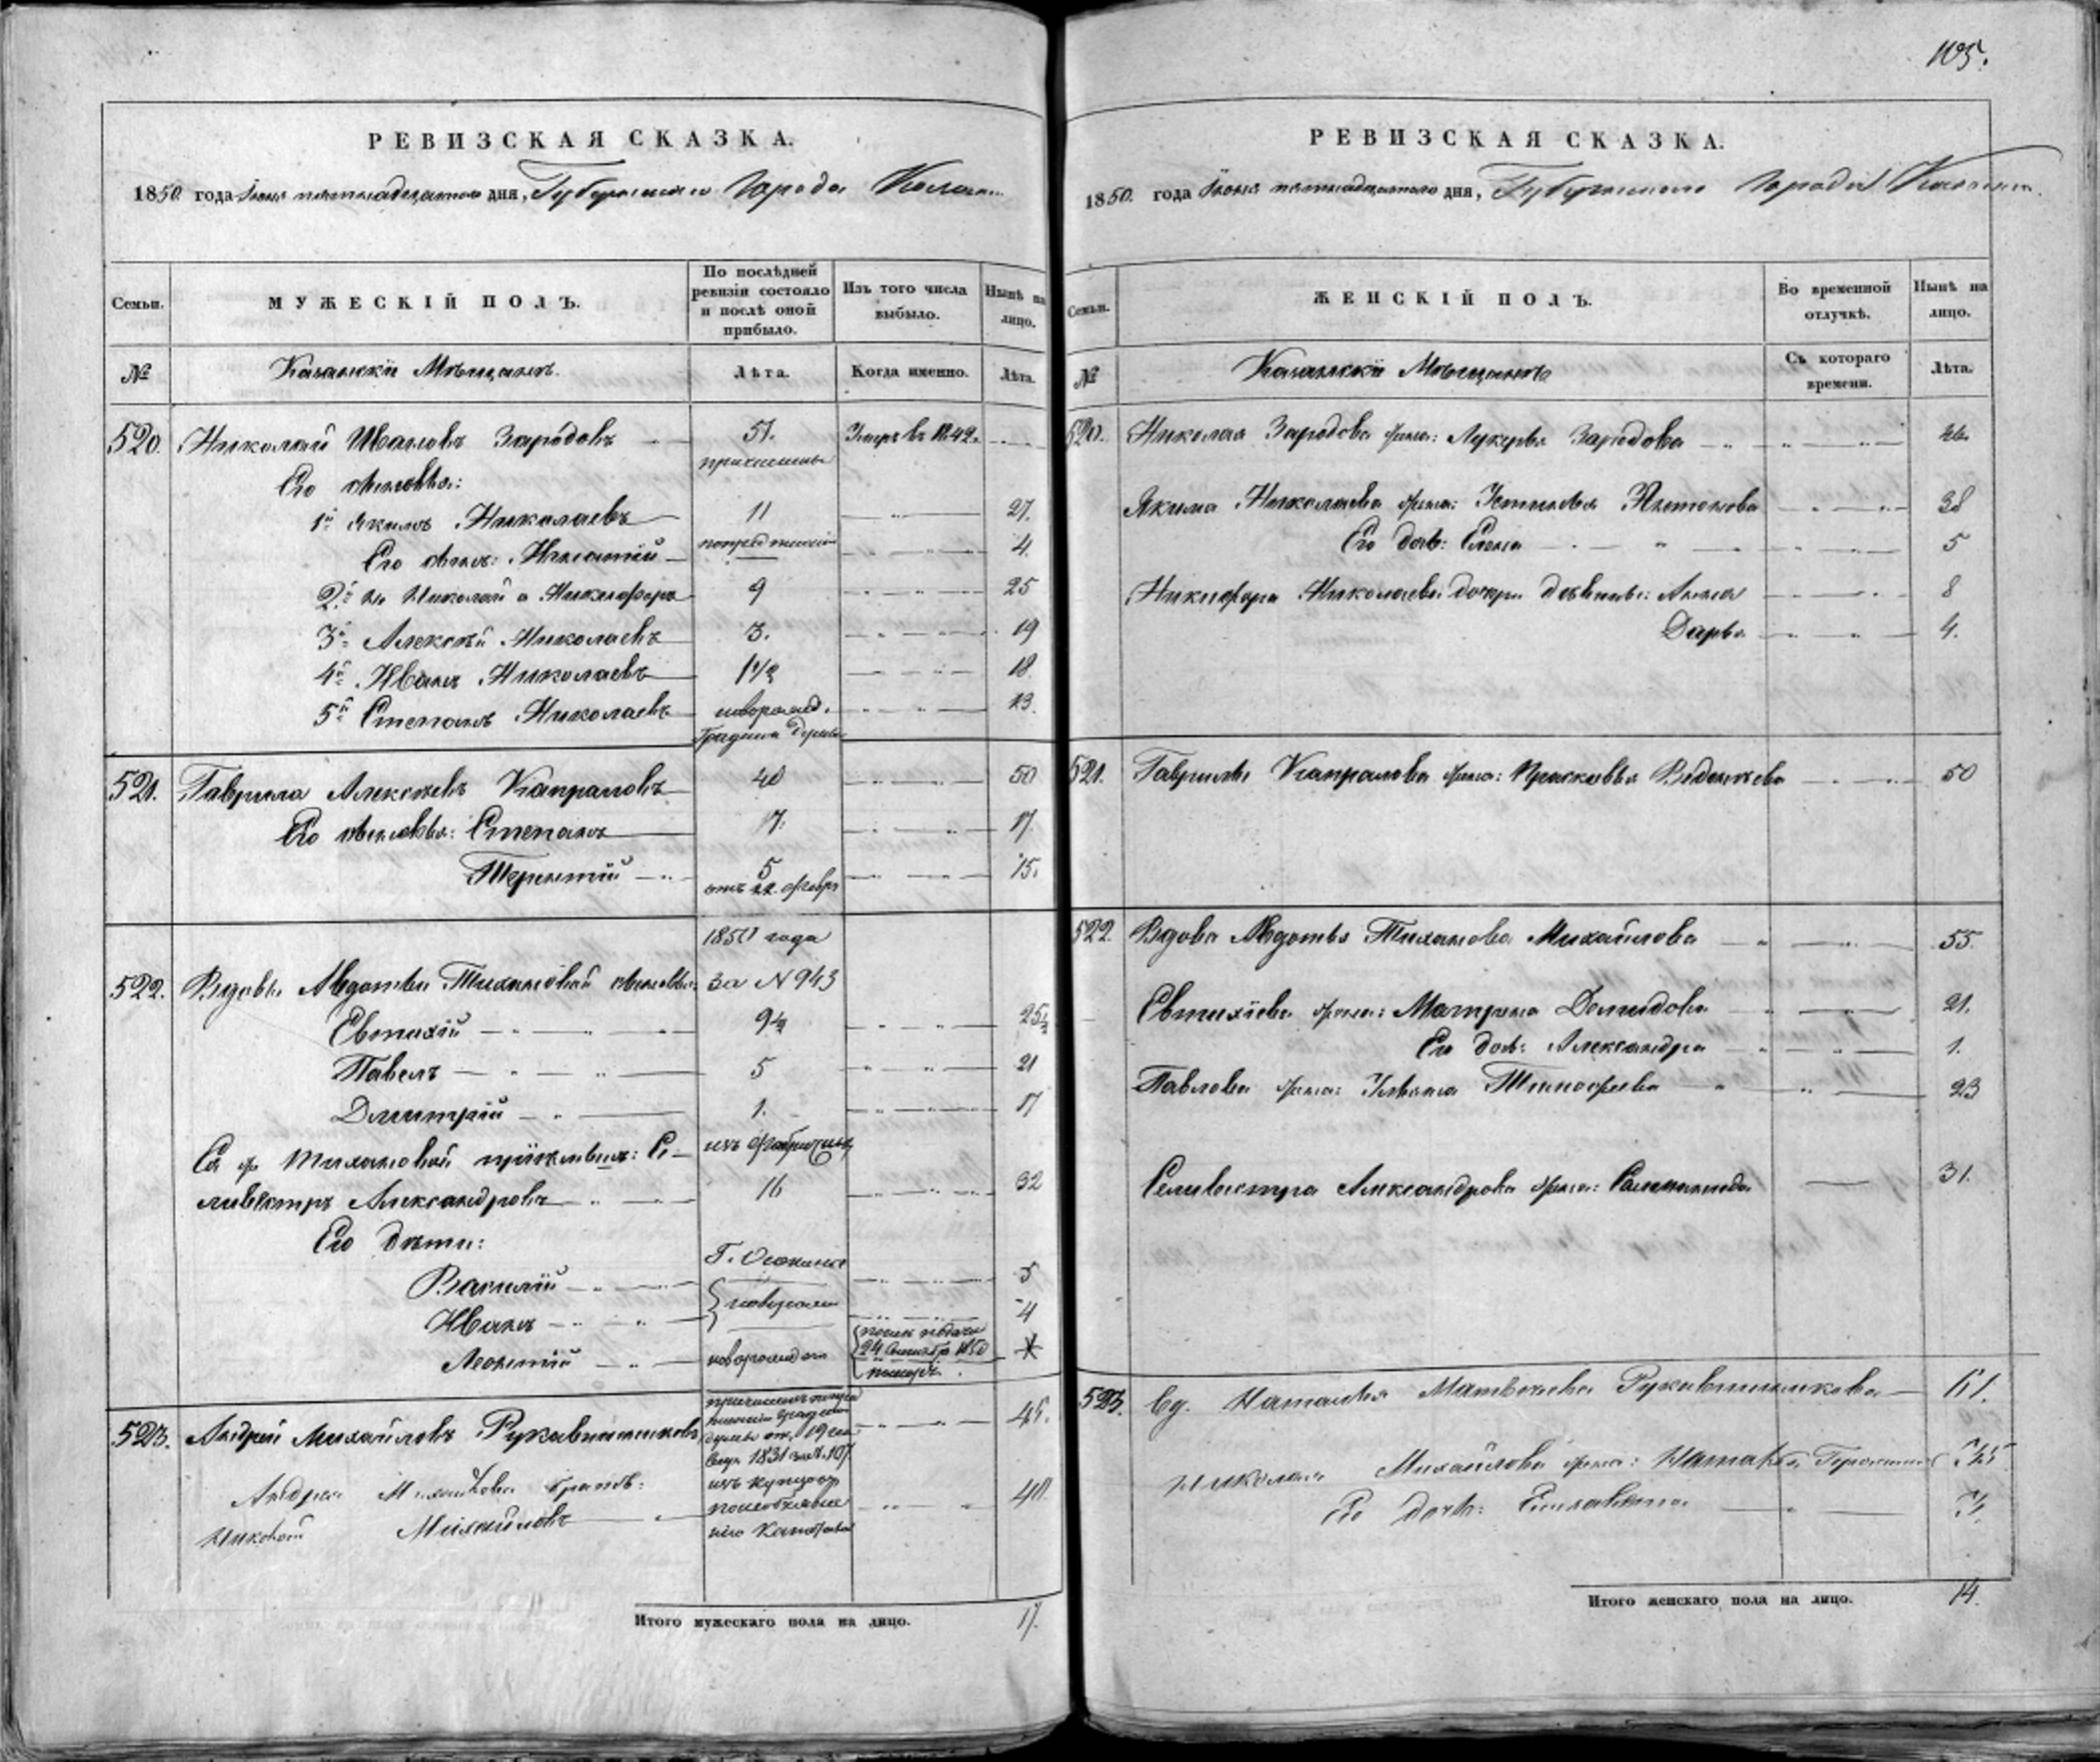 РЕВИЗСКАЯ СКАЗКА.
1850 года Іюня пятнадцатого дня, Губернскаго города Казани
Семьи.
МУЖЕСКІЙ ПОЛЪ.
По послѣдней ревизіи состояло и послѣ оной прибыло.
Изъ того числа выбыло.
Нынѣ на лицо.
№
Казанскіи Мѣщанъ.
Лѣта.
Когда именно.
Лѣта.
520. Николай Ивановъ Зародовъ 51. Умеръ въ 1842.
Его сыновья:
1й Якимъ Николаевъ 11 27.
Его сынъ: Игнатій 4.
2й Николай а Никифоръ 9 25
3й Алексѣй Николаевъ 3. 19
4й Иванъ Николаевъ 1 1/2 18
5й Степанъ Николаевъ новорожд. 13.
521. Гаврила Алексѣевъ Капраловъ 40 50
Его сыновья: Степанъ 7. 17.
Терентій 5 15.
отъ 22. февр
1850 года
522. Вдовы Авдотьи Тихановой сыновья: за N 943
Евтихій 9 1/2 25 1/2
Павелъ 5 21
Дмитрій 1. 17
Ея Тихановой Се-
ливестръ Александровъ 16 32
Его дѣти:
Г. Осокина
Василій 5
Иванъ 4
Леонтій новорожден
24 Сентября 1850
523. Андрей Михайловъ Рукавишниковъ 45.
1831 за № 107.
Андрея Михайлова братъ:
Николай Михайловъ 40.
Итого мужескаго пола на лицо. 17.
105.
РЕВИЗСКАЯ СКАЗКА.
1850. года Іюня пятнадцатого дня, Губернскаго города Казани.
Семьи.
ЖЕНСКІЙ ПОЛЪ.
Во временной отлучкѣ.
Нынѣ на лицо.
№
Казанскіи Мѣщанъ
Съ котораго времени.
Лѣта.
520. Николая Зародова жена: Лукерья Зародова
Якима Николаева жена: Устинья Антонова 38
Его дочь: Елена 5
Никифора Николаева дочери дѣвицы: Анна 8
Дарья 4.
521. Гаврилы Капралова жена: Прасковья 50
522. Вдова Авдотья Тиханова Михайлова 55.
Евтихіева жена: Матрена Демидова 21.
Его дочь: Александра 1.
Павлова жена: Ульяна Тимофеева 23
Селивестра Александрова жена: 31.
523. Вд. Наталья Матвѣева Рукавишникова 61.
Николая Михайлова жена: Наталья
Его дочь: Елизавета
Итого женскаго пола на лицо. 14.